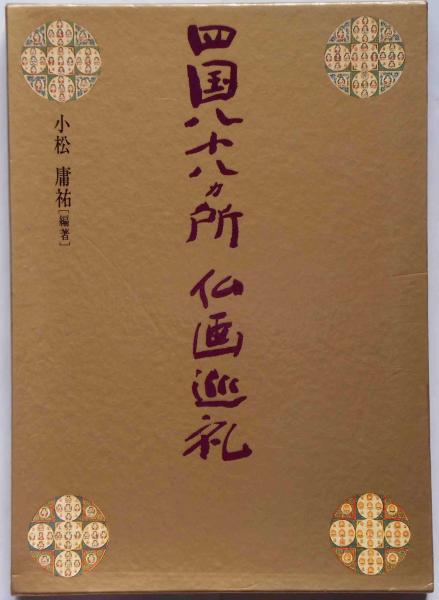 四国八十八ヵ所 仏画巡礼
小松 庸祐[編著]